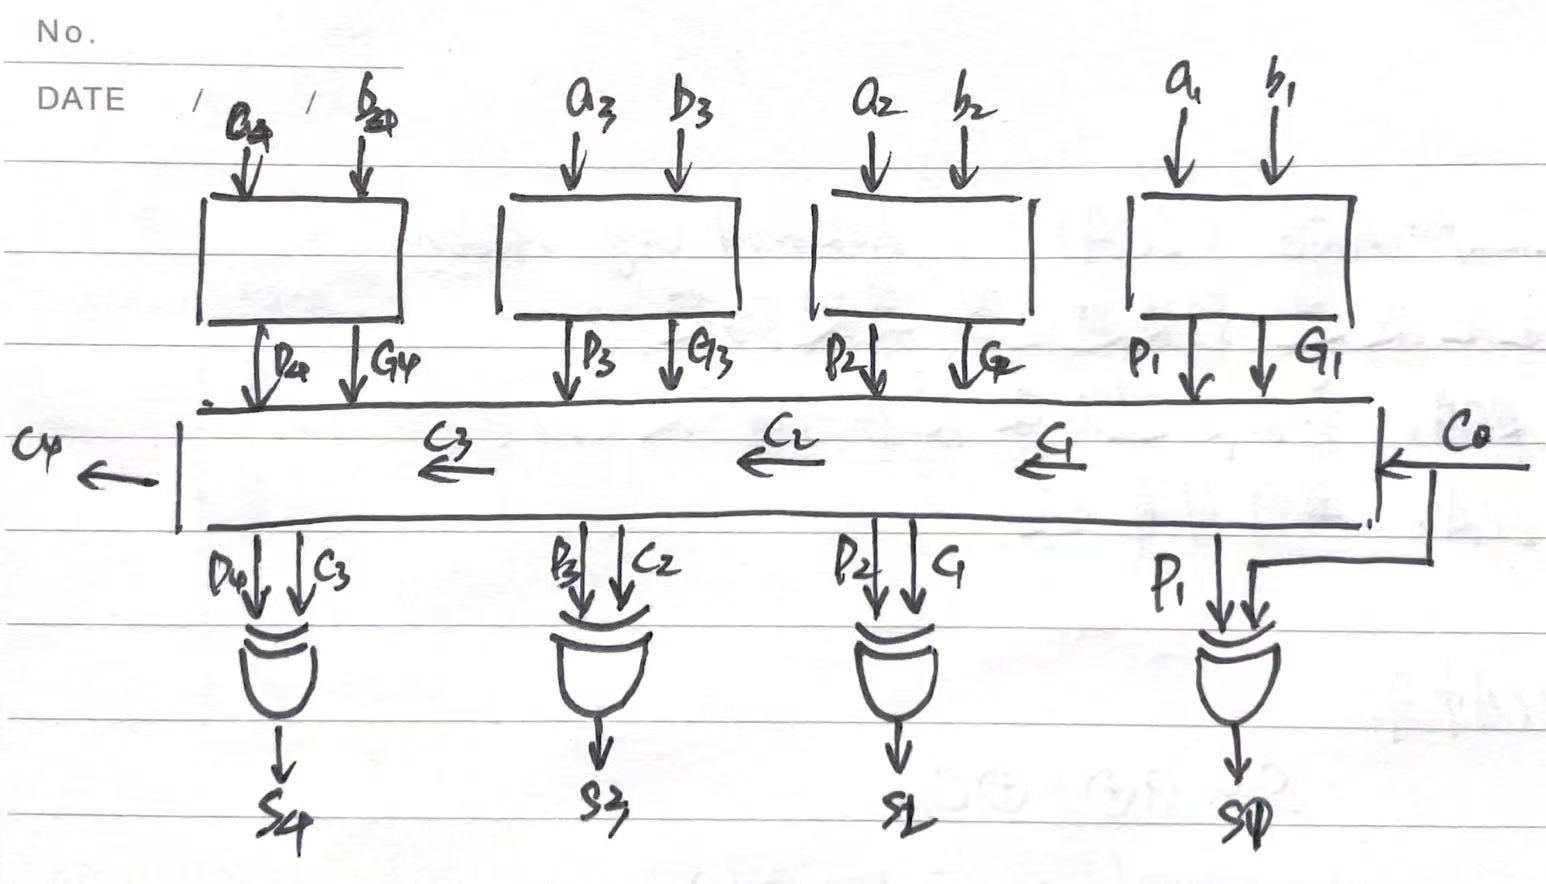 No.
DATE / /
a4 b4 a3 b3 a2 b2 a1 b1
P4 G4 P3 G3 P2 G2 P1 G1
C4 C3 C2 C1 C0
P4 C3 P3 C2 P2 C1 P1
S4 S3 S2 S1